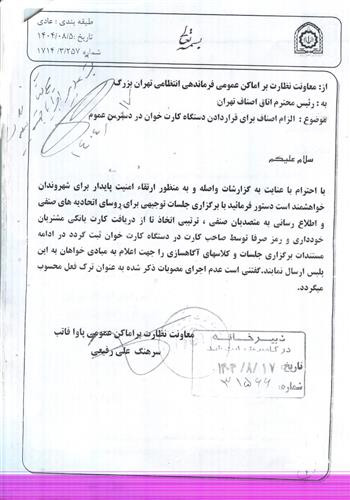 بسمه تعالی
طبقه بندی : عادی
تاریخ :۱۴۰۴/۰۸/۵
شماره :۱۷۱۴/۳/۲۵۷
از: معاونت نظارت بر اماکن عمومی فرماندهی انتظامی تهران بزرگ
به : رئیس محترم اتاق اصناف تهران
موضوع : الزام اصناف برای قراردادن دستگاه کارت خوان در دسترس عموم
سلام علیکم
با احترام با عنایت به گزارشات واصله و به منظور ارتقاء امنیت پایدار برای شهروندان
خواهشمند است دستور فرمائید با برگزاری جلسات توجیهی برای روسای اتحادیه های صنفی
و اطلاع رسانی به متصدیان صنفی ، ترتیبی اتخاذ تا از دریافت کارت بانکی مشتریان
خودداری و رمز صرفا توسط صاحب کارت در دستگاه کارت خوان ثبت گردد در ادامه
مستندات برگزاری جلسات و کلاسهای آگاهسازی را جهت اعلام به مبادی خواهان به این
پلیس ارسال نمایند.گفتنی است عدم اجرای مصوبات ذکر شده به عنوان ترک فعل محسوب
میگردد.
معاونت نظارت بر اماکن عمومی پاوا فاتب
سرهنگ علی رفیعی
دبیرخانه
تاریخ: ۱۴۰۴/۸/۱۷
شماره: ۳۱۵۶۶